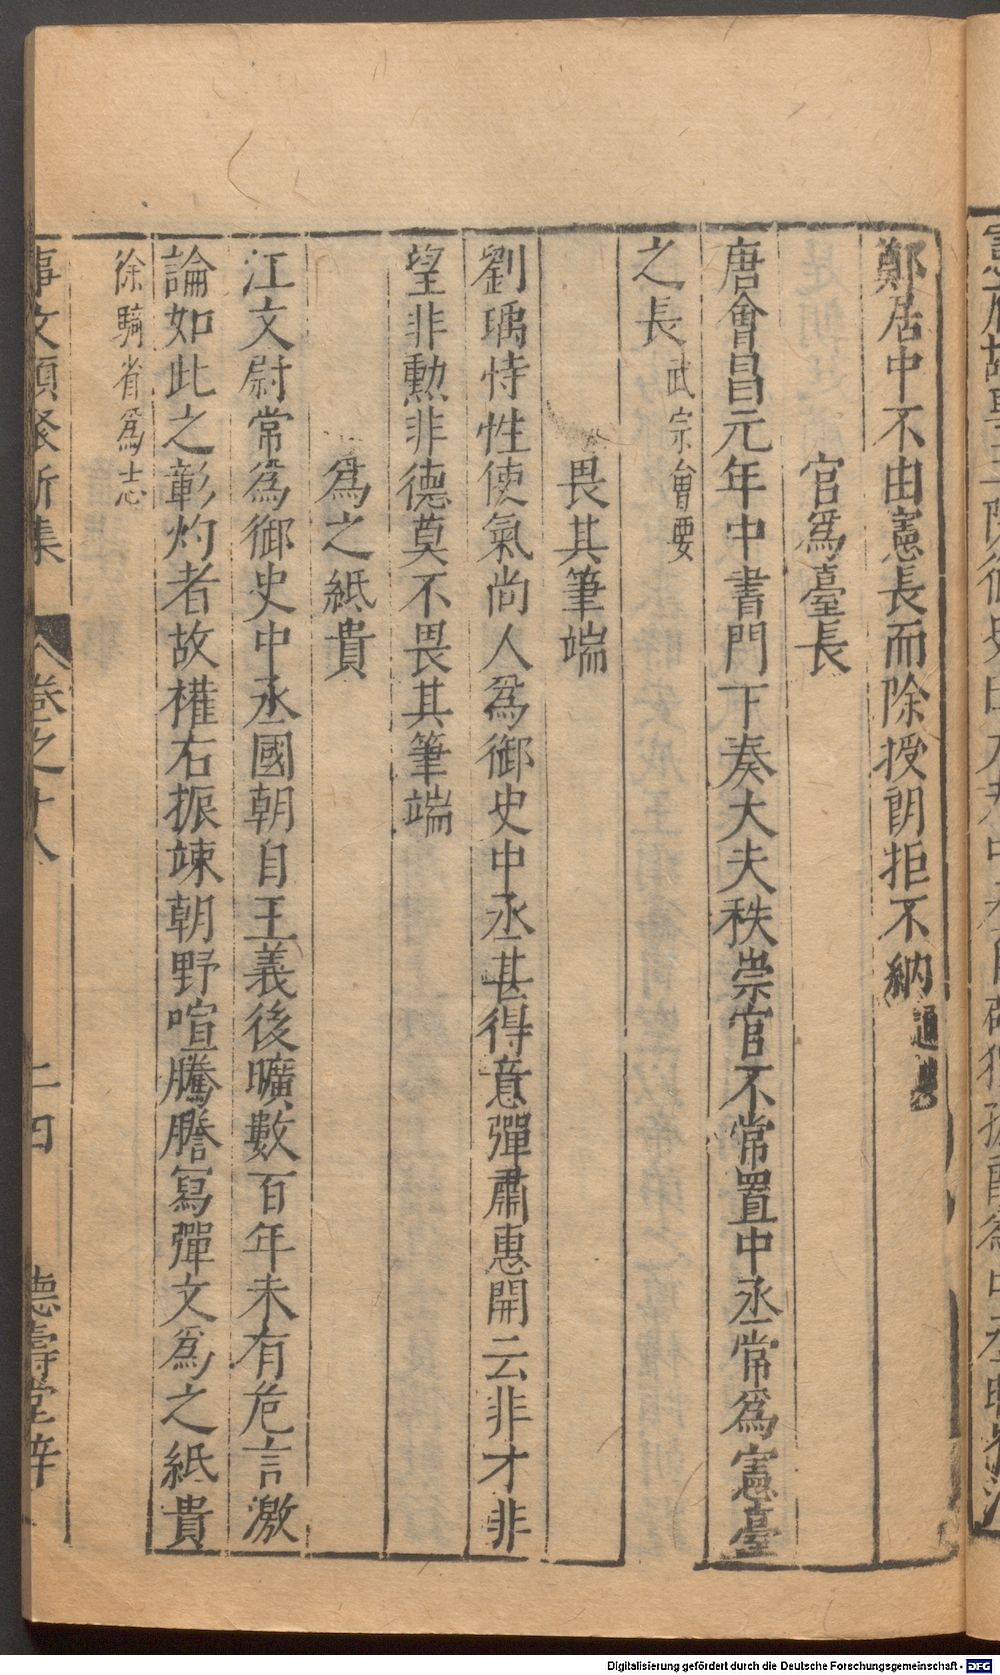 鄭居中不由憲長而除授朗拒不納
官爲臺長
唐會昌元年中書門下奏大夫秩崇官不常置中丞常爲憲臺
之長武宗會要
畏其筆端
劉瑀恃性使氣尚人爲御史中丞甚得意彈肅惠開云非才非
望非勲非德莫不畏其筆端
爲之紙貴
江文尉常爲御史中丞國朝自王義後曠數百年未有危言激
論如此之彰灼者故權右振竦朝野喧騰謄寫彈文爲之紙貴
徐騎省爲志
事文類聚新集 卷之十八 二四 德壽堂梓
Digitalisierung gefördert durch die Deutsche Forschungsgemeinschaft - DFG